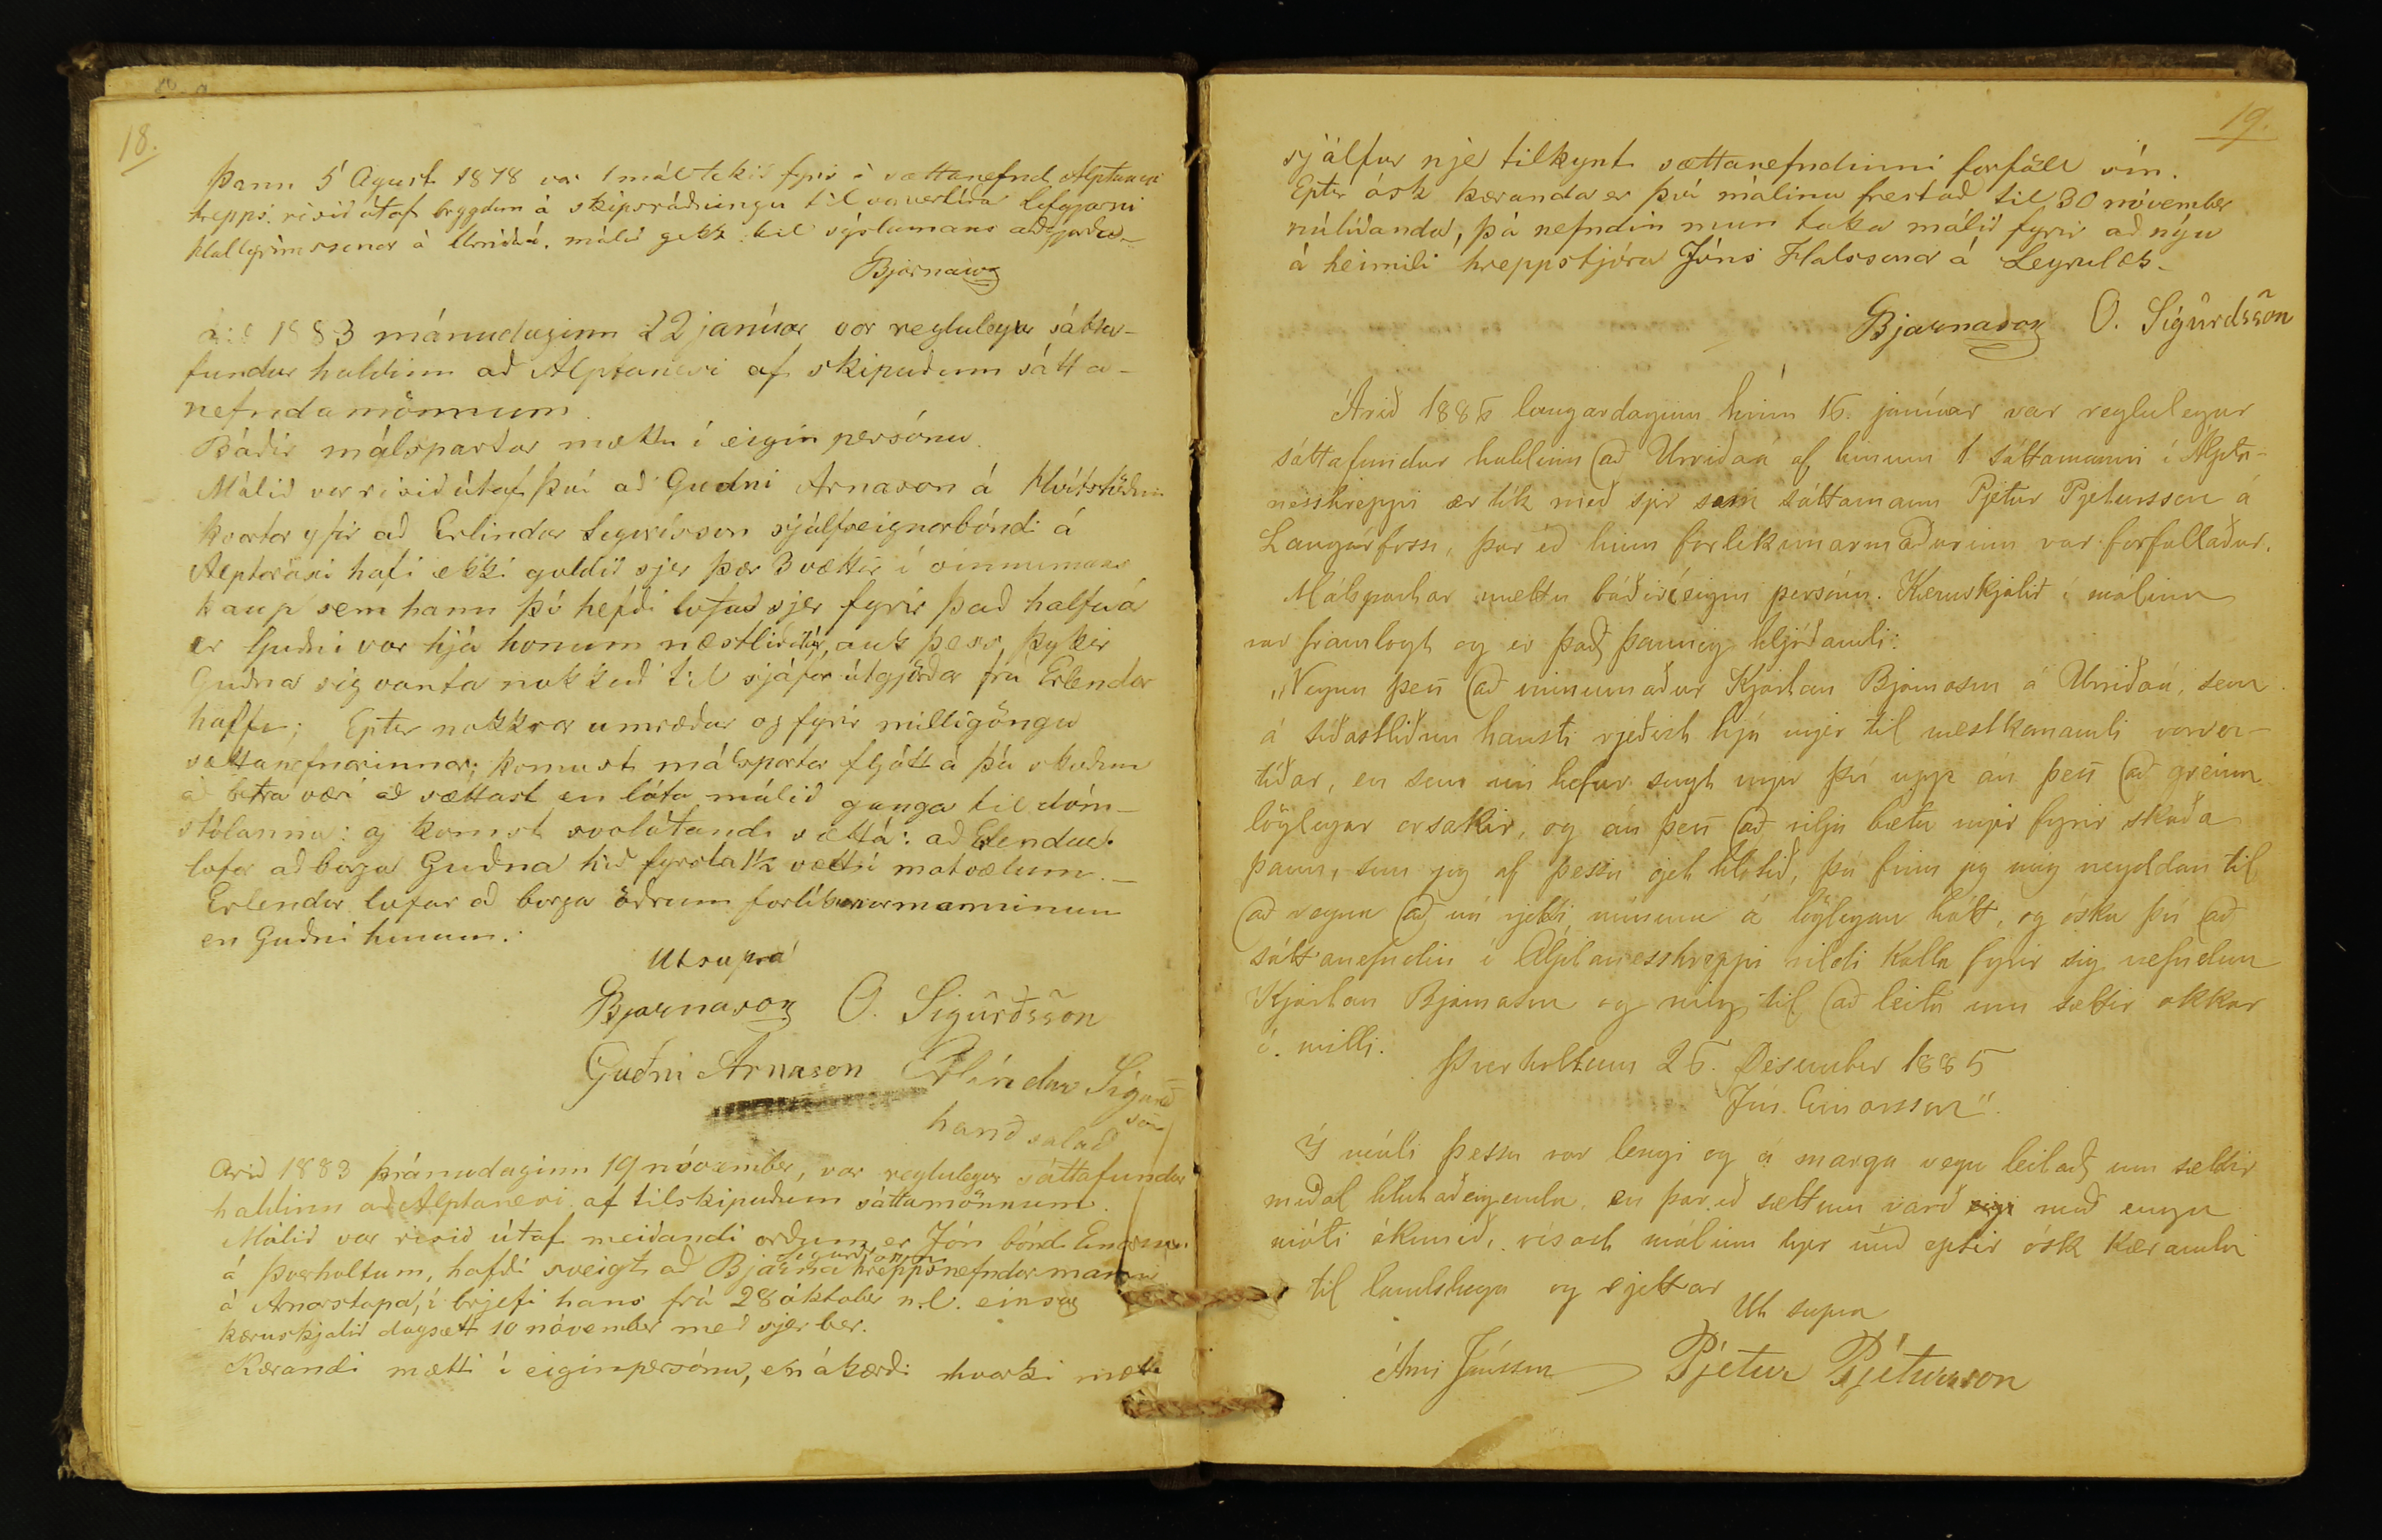 18.
Þann 5 Agust 1878 var 1 mál tekið fyrir í sættanefnd Alptaness
hrepps. risið útaf brygdum á skipsráðningu til vorvertíða Sefgarni
Hallgrimssonar á Urriðaá. málið gekk til sýslumans aðgjörða.
Bjarnason
1883 mánudaginn 22 janúar var reglulegur sátta-
fundur haldinn að Alptanesi af skipuðum sátta-
nefndamönnum.
Báðir málspartar mættu í eigin persónu.
Málið var risið útaf því að Gudni Arnason á Hvítstöðum
kvartar yfir að Erlindur Sigurðsson sjálfseignarbóndi á
Alptarósi hafi ekki goldið sjer þær 3 vættir í vinnumans
kaup sem hann þó hefði lofað sjer fyrir það halfa ár
er Guðni var hjá honum næstliðið ár, auk þess, þykir
Guðna sig vanta nokkuð til sjáfar útgjörðar frá Erlendar
halfu; Epter nokkrar umræður og fyrir milligöngu
sættanefnarinnar; komust málspartar fljótt á þá skoðun
að betra væri að sættast en láta málið ganga til dóm-
stólanna: og komst svolátandi sætt á: að Elendur
lofar að borga Guðna hið fyrsta 1½ vætt í matvælum. —
Erlendur lofar að borga öðrum forlíkunarmanninum
en Guðni hinum.
Ut supra
Bjarnason O. Sigurðsson
Guðni Arnason Erlindur Sigurð
son
handsalað
Arið 1883 þránudaginn 19 nóvember, var reglulegur sáttafundur
haldinn að Alptanesi af tilskipuðum sáttamönnum.
Málið var risið útaf meiðandi orðum er Jón bónd Einarsson
Sigurðsson
á Þverholtum, hafði sveigt að Bjarna hreppsnefndar manni
á Arnarstapa, í brjefi hans frá 28 október n.l. eins og
kæruskjalið dagsett 10 nóvember með sjer ber.
Kærandi mætti í eiginpersónu, en ákærði hvorki mætti
19.
sjálfur nje tilkynt sættanefndinni forföll sín.
Epter ósk kæranda er því málinu frestað til 30 nóvember
núlíðanda, þá nefndin mun taka málið fyrir að nýu
á heimili hreppstjóra Jóns Halssonar á Leyrulæk.
Bjarnason O. Sigurdsson
Árið 1886 laugardaginn hinn 16. janúar var reglulegur
sáttafundur haldinn að Urriðaá af hinum 1 sáttamanni í Álpta-
nesshreppi er tók með sjer sem sáttamann Pjetur Pjetursson á
Langárfossi, þar eð hinn forlíkunarmaðurinn var forfallaður.
Málspartar mættu báðir í eigin persónu. Kæruskjalið í málinu
var framlagt og er það þannig hljóðandi:
„Vegna þess að vinnumaður Kjartan Bjarnason á Urriðaá, sem
á síðastliðnu hausti rjeðist hjá mjer til næstkomandi vorver-
tíðar, en sem nú hefur sagt mjer því upp án þess að greina
löglegar orsakir, og án þess að vilja bæta mjer fyrir skaða
þann, sem jeg af þessu get hlotið, þá finn jeg mig neyddan til
að vegna að ná rjetti mínum á löglegan hátt, og óska því að
sáttanefndin í Álptanesshreppi vildi kalla fyrir sig nefndan
Kjartan Bjarnason og mig til að leita um sættir okkar
í milli.
Þverholtum 26. Desember 1885
Jón Einarsson“.
Í máli þessu var lengi og á marga vegu leitað um sættir
meðal hlutaðeigenda, en þar eð sættum varð eigi með engu
móti ákomið, vísast málinu hjer með eptir ósk kæranda
til landslaga og rjettar
Ut supra
Árni Jónsson Pjetur Pjetursson